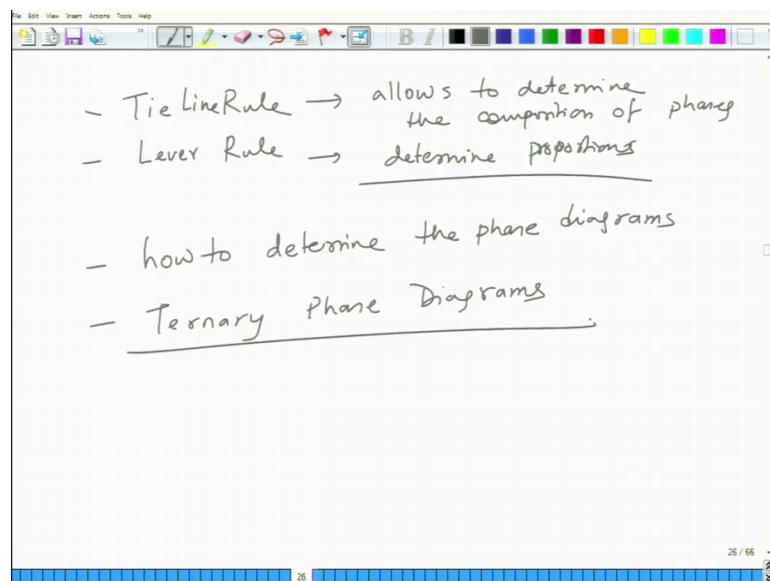 File Edit View Insert Actions Tools Help
B I
- Tie Line Rule → allows to determine
the composition of phases
- Lever Rule → determine proportions
- how to determine the phase diagrams
- Ternary Phase Diagrams
26 / 66
26